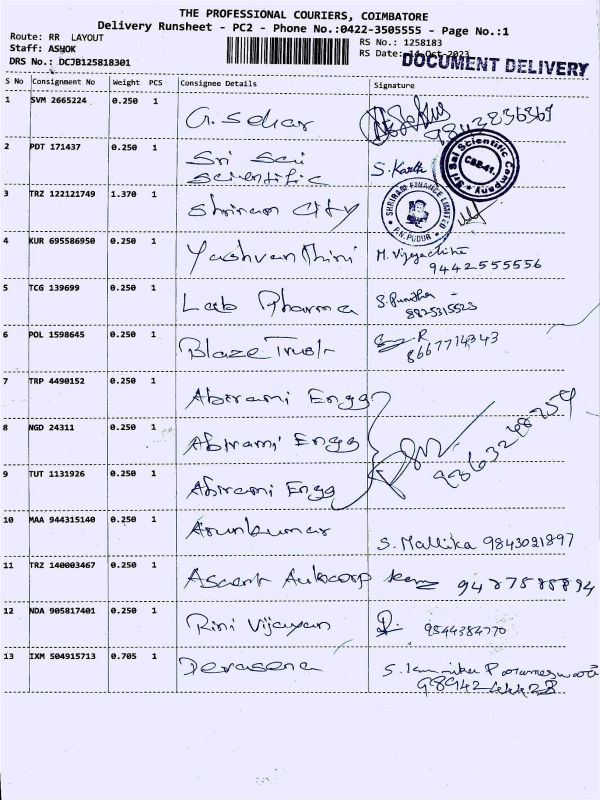 THE PROFESSIONAL COURIERS, COIMBATORE
Delivery Runsheet - PC2 - Phone No.:0422-3505555 - Page No.:1
Route: RR LAYOUT
Staff: ASHOK
DRS No.: DCJB125818301
RS No.: 1258183
RS Date: 14-Oct-2023
DOCUMENT DELIVERY
S No Consignment No Weight PCS Consignee Details Signature
1 SVM 2665224 0.250 1 G. Sekar
2 PDT 171437 0.250 1 Sri Sai Scientific S. Karthi
Sri Sai Scientific Company CBE-41.
3 TRZ 122121749 1.370 1 Shriram City
SHRIRAM FINANCE LIMITED P.N. PUDUR
4 KUR 695586950 0.250 1 Yashvanthini M. Vijayachitra
9442555556
5 TCG 139699 0.250 1 Lab Pharma
8825315523
6 POL 1598645 0.250 1 Blaze Trust R
8667714343
7 TRP 4490152 0.250 1 Abirami Engg
8 NGD 24311 0.250 1 Abirami Engg
9 TUT 1131926 0.250 1 Abirami Engg
10 MAA 944315140 0.250 1 Arunkumar S. Mallika 9843021897
11 TRZ 140003467 0.250 1 Ascent Autocorp
12 NDA 905817401 0.250 1 Rini Vijayan 9544384770
13 IXM 504915713 0.705 1 Devasena